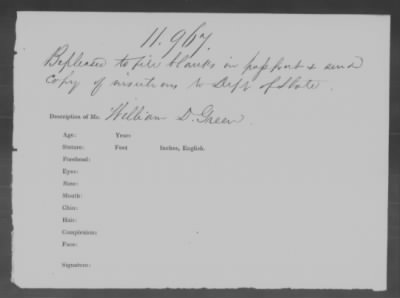 11.967.
Replaced to fill blanks in passport & send
copy of insertions to Dept of State.
Description of Mr. William D. Green.
Age: Years
Stature: Feet Inches, English.
Forehead:
Eyes:
Nose:
Mouth:
Chin:
Hair:
Complexion:
Face:
Signature: